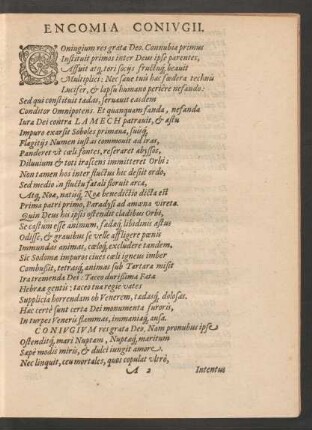 ENCOMIA CONIVGII.
COniugium res grata Deo. Connubia primus
Instituit primos inter Deus ipse parentes,
Affuit atq; tori socijs fructuq; beauit
Multiplici: Nec sane tuis hæc fœdera technis
Lucifer, & lapsu humano periere nefando:
Sed qui constituit tædas, seruauit easdem
Conditor Omnipotens. Et quanquam fanda, nefanda
Iura Dei contra LAMECH patrauit, & astu
Impuro exarsit Soboles primæna, suisq;
Flagitijs Numen iustas commouit ad iras,
Panderet vt cœli fontes, reseraret abyssos,
Diluuium & toti irascens immitteret Orbi:
Non tamen hos inter fluctus hæc desijt ordo,
Sed medio in fluctu fatali floruit arca,
Atq; Noæ, natisq; Noæ benedictio dicta est
Prima patri primo, Paradysi ad amœna vireta.
Quin Deus his ipsis ostendit cladibus Orbi,
Se castum esse animum, fædæq; libidinis æstus
Odisse, & grauibus se velle affligere pœnis
Immundas animas, cæloq; excludere tandem,
Sic Sodomæ impuros ciues cœli igneus imber
Combussit, tetrasq; animas sub Tartara misit
Ira tremenda Dei: Taceo durissima Fata
Hebrææ gentis: taceo tua regie vates
Supplicia horrendam ob Venerem, tædasq; dolosas.
Hæc certè sunt certa Dei monumenta furoris,
In turpes Veneris flammas, immaniaq; ausa.
CONIVGIVM res grata Deo, Nam pronubus ipse
Ostenditq; mari Nuptam, Nuptæq; maritum
Sæpè modis miris, & dulci iungit amore:
Nec linquit, ceu mortales, quos copulat vltrò,
A 2 Intentus